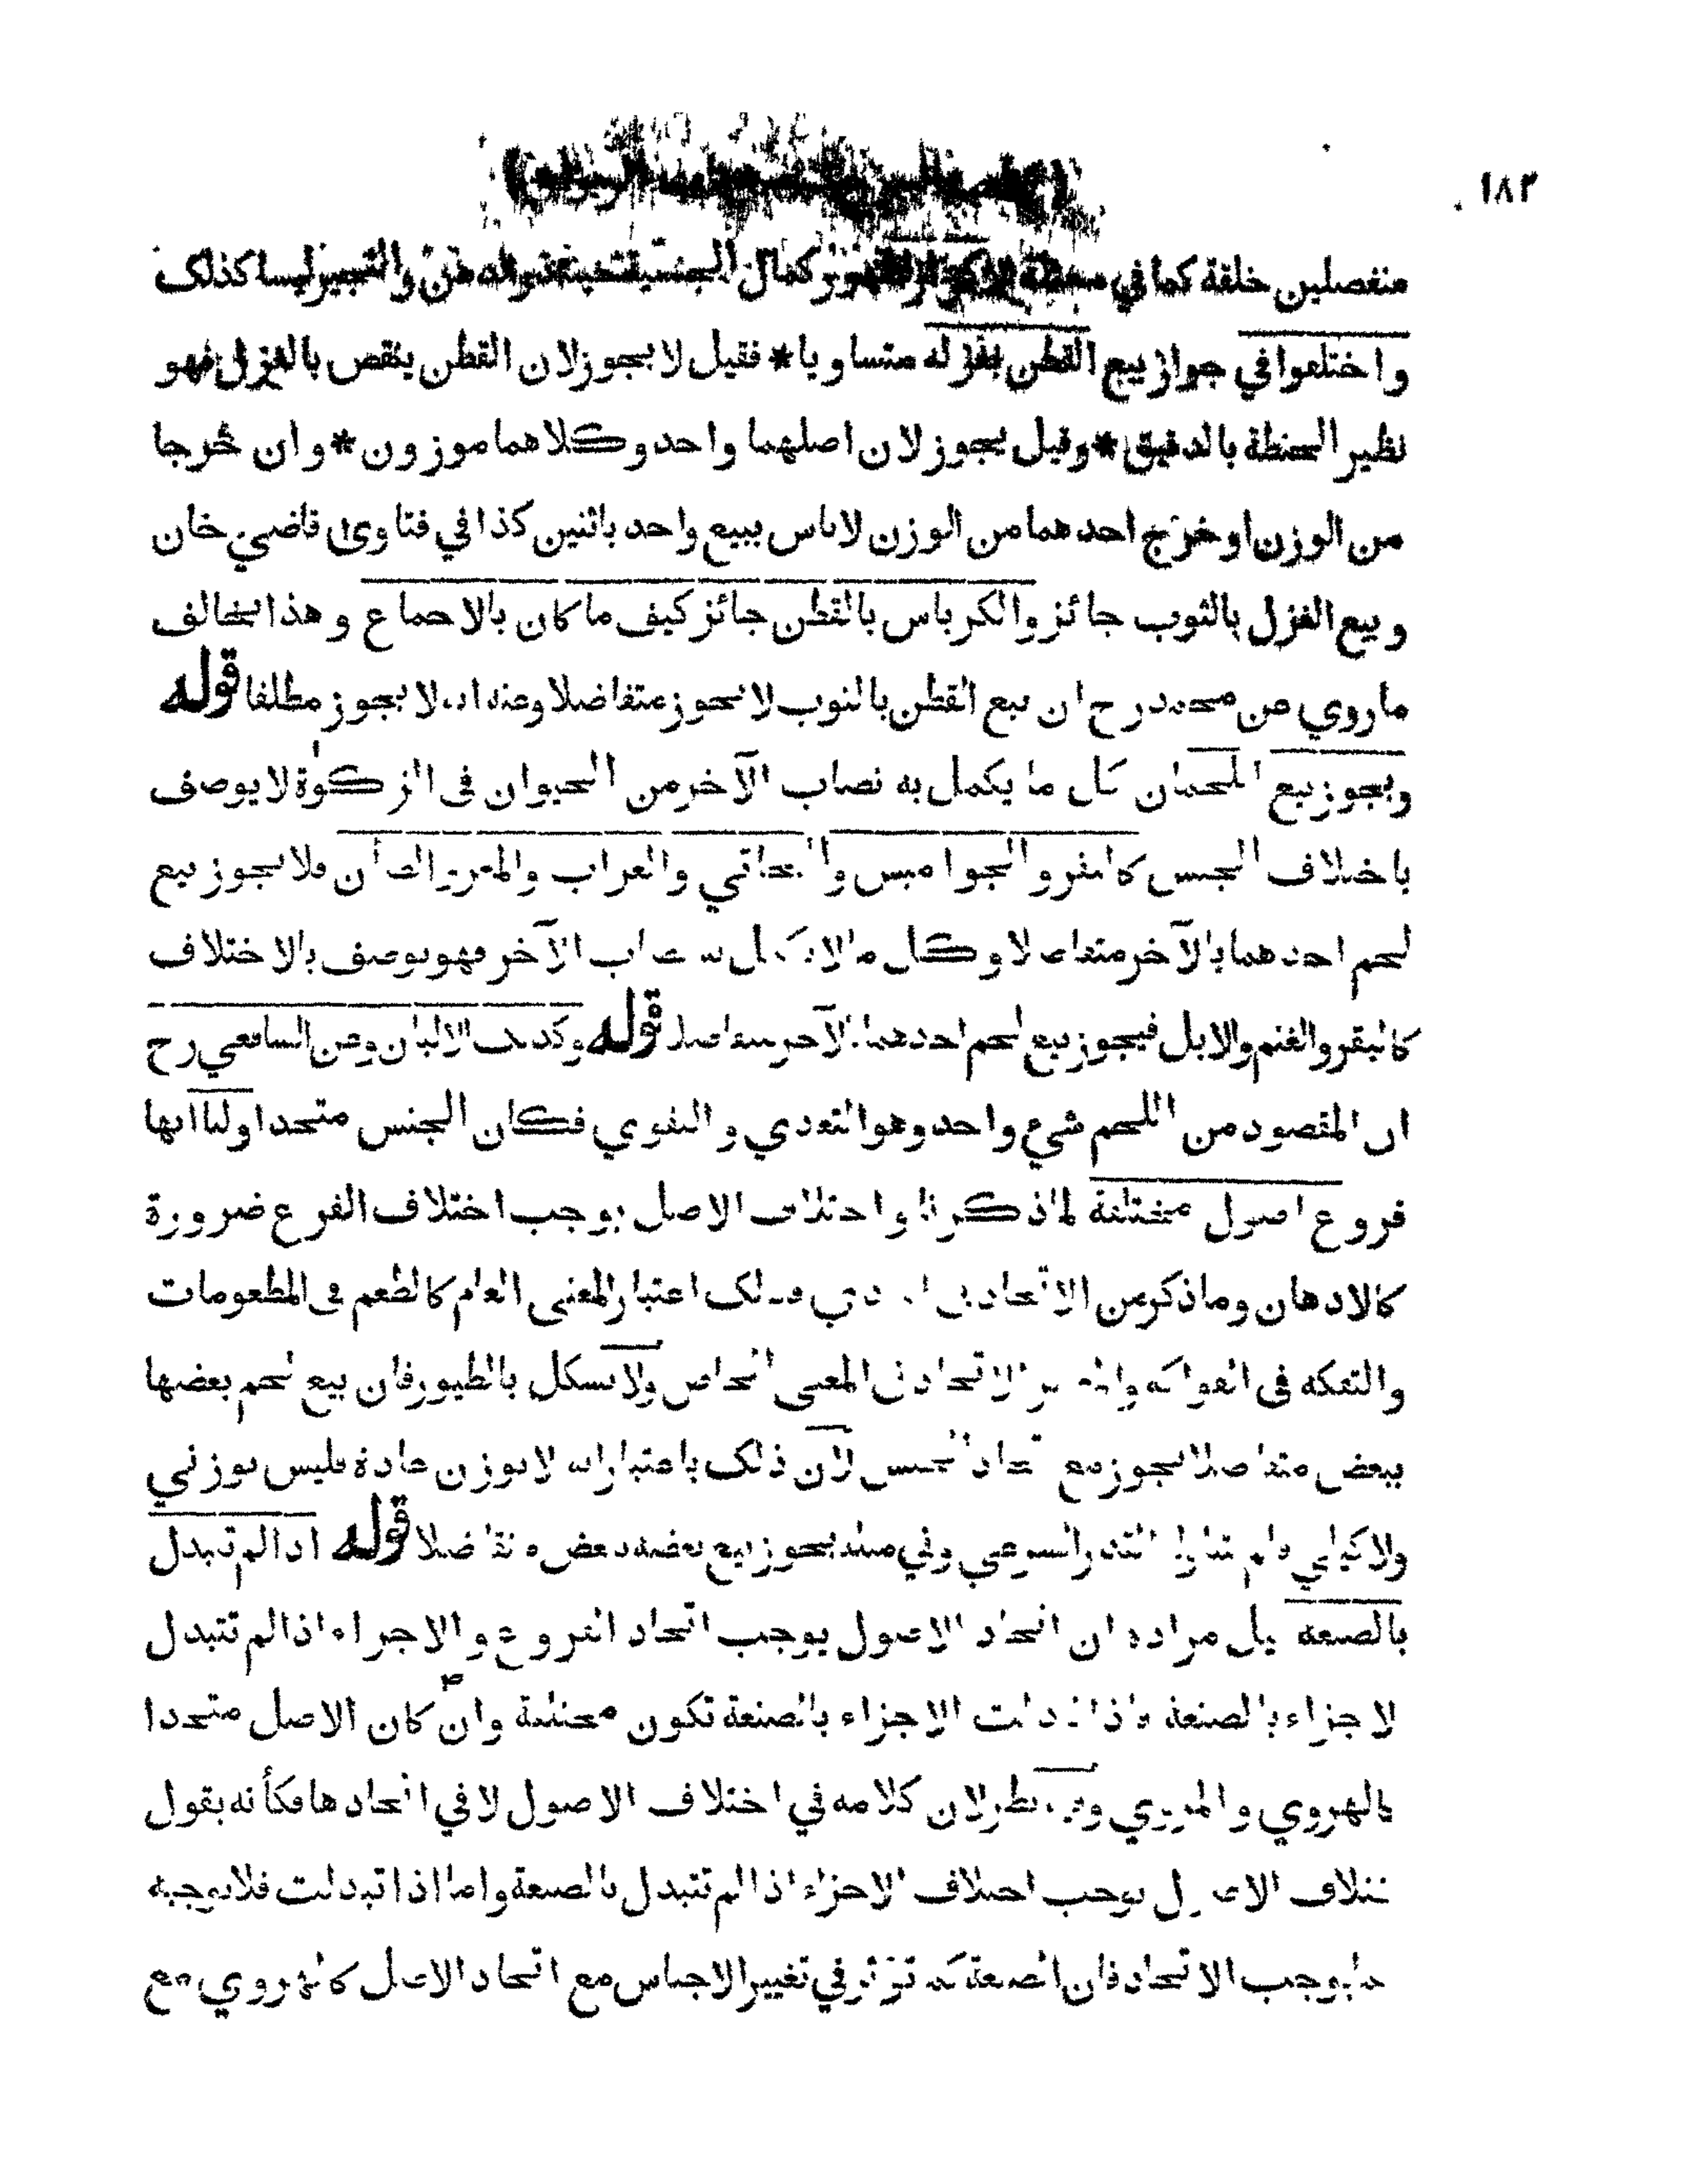 ١٨٢
منفصلين خلقة كما في كمال الجنسية والشيرج ليسا كذلك
واختلفوا في جواز بيع القطن بغزله متساويا * فقيل لا يجوز لان القطن ينقص بالغزل فهو
نظير الحنطة بالدقيق * وقيل يجوز لان اصلهما واحد وكلاهما موزون * وان خرجا
من الوزن او خرج احدهما من الوزن لاباس ببيع واحد باثنين كذا في فتاوى قاضي خان
وبيع الغزل بالثوب جائز والكرباس بالقطن جائز كيف ما كان بالاجماع وهذا يخالف
ماروي عن محمد رح ان بيع القطن بالثوب لا يجوز متفاضلا لا يجوز مطلقا قوله
ويجوز بيع اللحمان كل ما يكمل به نصاب الآخر من الحيوان في الزكوة لا يوصف
باختلاف الجنس كالبقر والجواميس والبخاتي والعراب والمعز والضأن فلا يجوز بيع
لحم احدهما بالآخر متفاضلا وكل مالا يكمل به نصاب الآخر فهو يوصف بالاختلاف
كالبقر والغنم والابل فيجوز بيع لحم احدهما بالآخر متفاضلا قوله وكذلك الالبان وعن الشافعي رح
ان المقصود من اللحم شيء واحد وهو التغذي والتقوي فكان الجنس متحدا ولنا انها
فروع اصول مختلفة لما ذكرنا واختلاف الاصل يوجب اختلاف الفرع ضرورة
كالادهان وما ذكر من الاتحاد اعتبار المعنى العام كالطعم في المطعومات
والتفكه في الفواكه الاتحاد في المعنى الخاص ولا يشكل بالطيور فان بيع لحم بعضها
ببعض متفاضلا يجوز مع اتحاد الجنس لان ذلك باعتبار انه لا يوزن عادة فليس بوزني
ولا كيلي فلم يتناوله القدر الشرعي وفي مثله يجوز بيع بعضه ببعض متفاضلا قوله اذا لم تتبدل
بالصنعة قيل مراده ان اتحاد الاصول يوجب اتحاد الفروع والاجزاء اذا لم تتبدل
لاجزاء بالصنعة فاذا تبدلت الاجزاء بالصنعة تكون مختلفة وان كان الاصل متحدا
كالهروي والمروي وفيه نظر لان كلامه في اختلاف الاصول لا في اتحادها فكأنه يقول
ختلاف الاصول يوجب اختلاف الاجزاء اذا لم تتبدل بالصنعة واما اذا تبدلت فلا يوجبه
يوجب الاتحاد فان الصنعة كما تؤثر في تغيير الاجناس مع اتحاد الاصل كالهروي مع